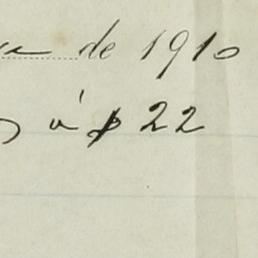 de 1910
à $ 22